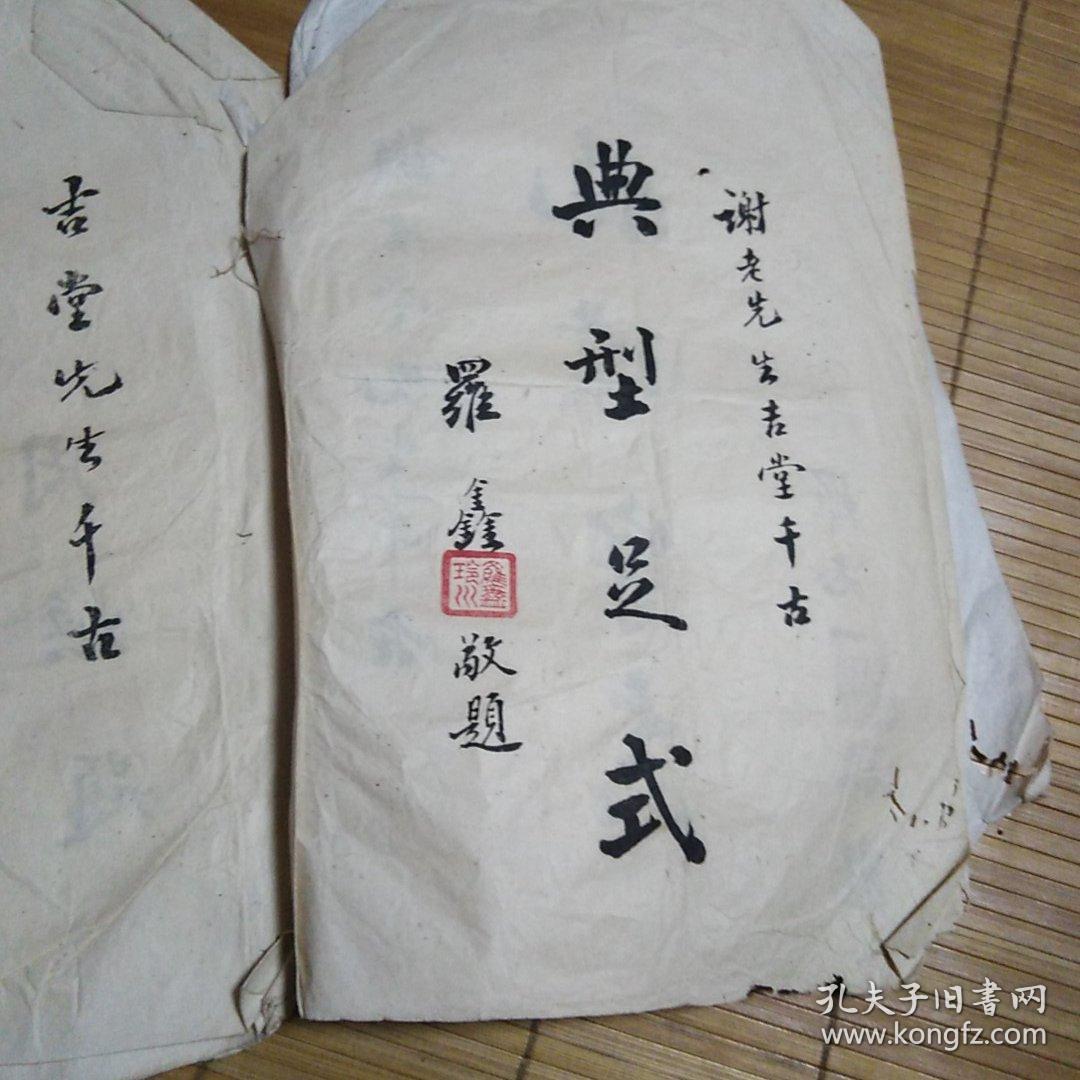 谢老先生吉堂千古
典型足式
羅鑫
敬題
吉堂先生千古
孔夫子旧書网
www.kongfz.com